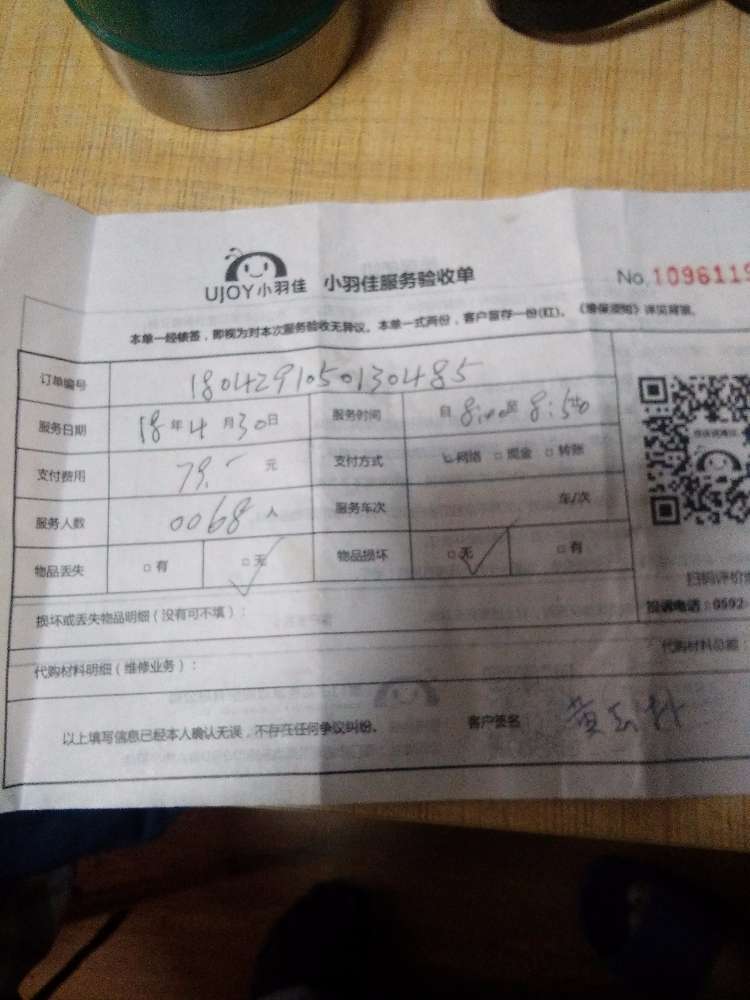 UJOY小羽佳 小羽佳服务验收单 No. 1096119
本单一经镇签，即视为对本次服务验收无异议。本单一式两份，客户留存一份(红)。《增保须知》详见背面。
订单编号 180429105013048​5
服务日期 18年4月30日 服务时间 自8:00至8:50
支付费用 79.- 元 支付方式 网络 现金 转账
服务人数 0068人 服务车次 车/次
物品丢失 有 无 物品损坏 无 有
扫码评价
投诉电话：0592
损坏或丢失物品明细（没有可不填）：
代购材料总额：
代购材料明细（维修业务）：
以上填写信息已经本人确认无误，不存在任何争议纠纷。 客户签名